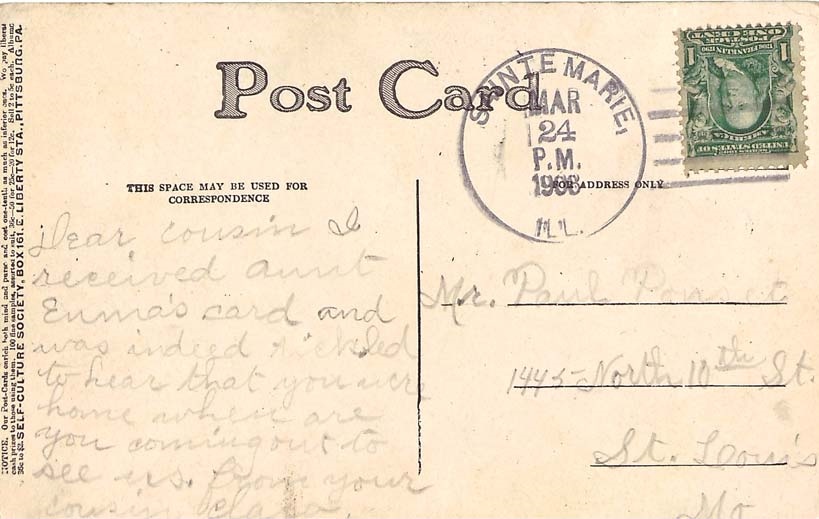 Post Card
THIS SPACE MAY BE USED FOR
CORRESPONDENCE
FOR ADDRESS ONLY
SAINTE MARIE,
MAR
24
P.M.
ILL.
UNITED STATES OF
AMERICA
1 1
POSTAGE
ONE CENT
Dear cousin I
received aunt
Emma's card and
was indeed tickled
to hear that you were
home when are
you coming out to
see us. from your
cousin Clara.
Mr. Paul
1445 North 10th St.
St. Louis
Mo
NOTICE. Our Post-Cards enrich both mind and purse and cost one-tenth as much as inferior ones. We pay liberal
cash prizes to those using them. 100 fine samples, assorted to suit,
SELF-CULTURE SOCIETY, BOX 161, E. LIBERTY STA., PITTSBURG, PA.